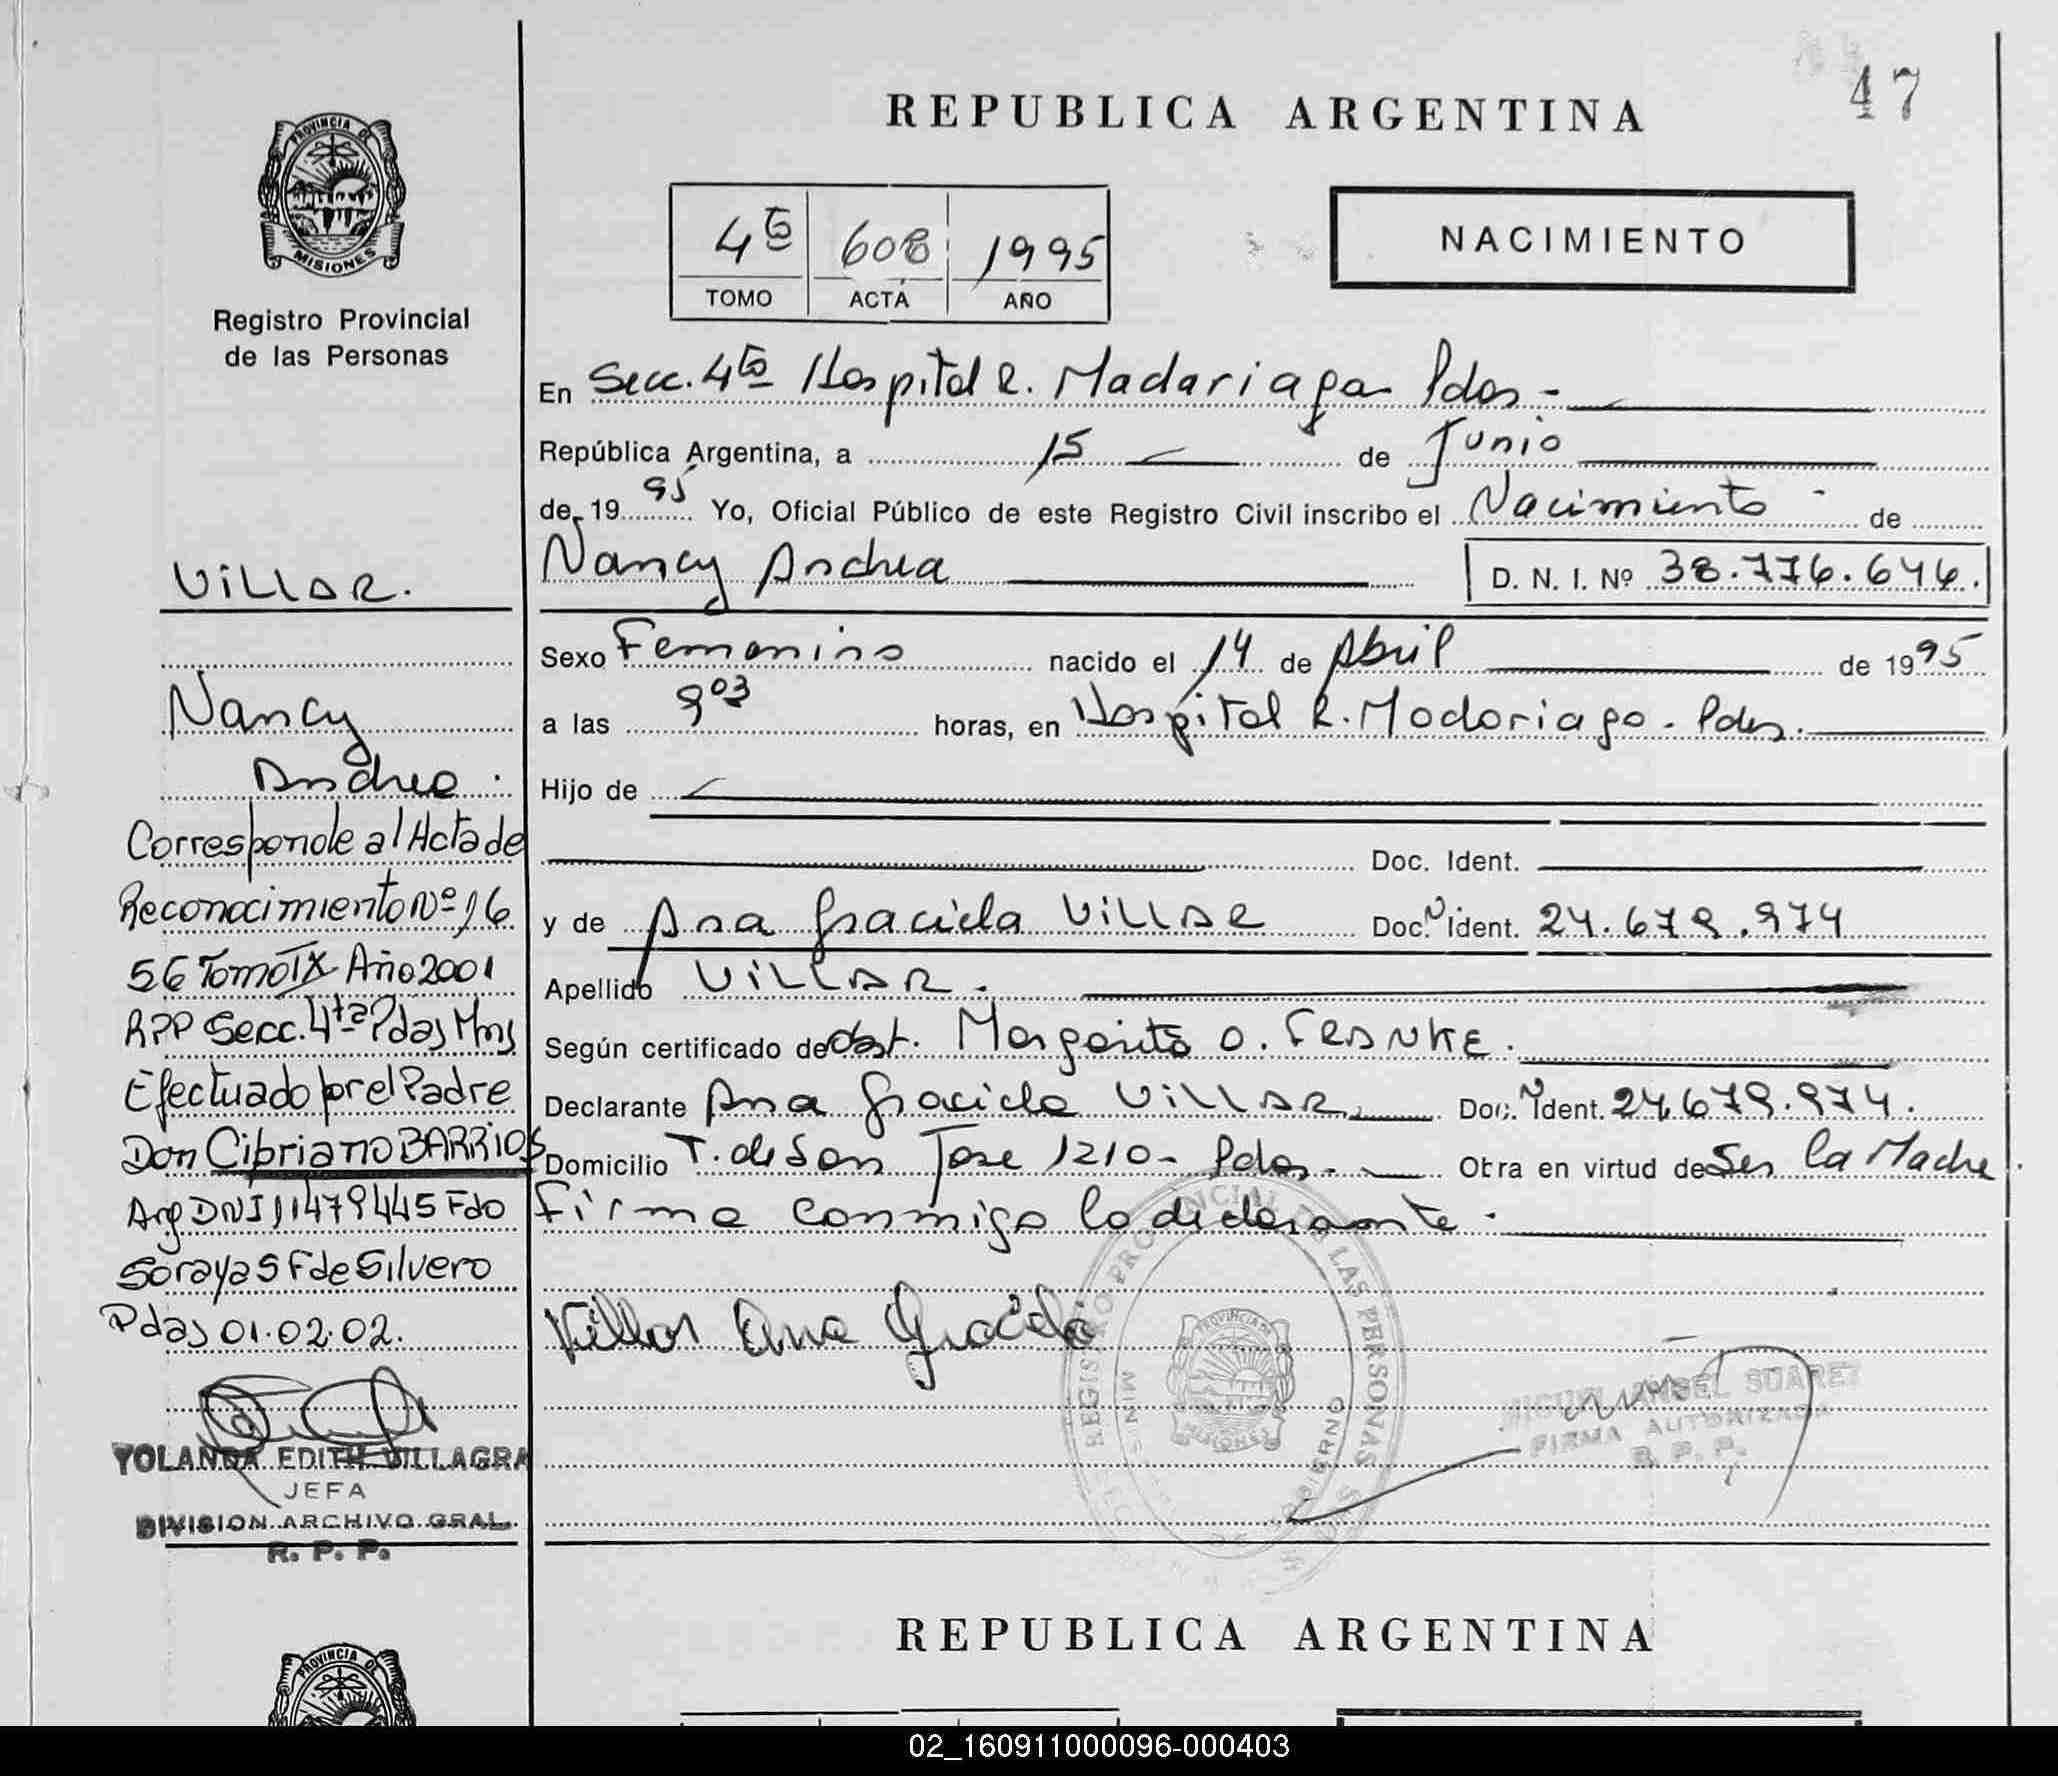 47
REPUBLICA ARGENTINA
PROVINCIA DE
MISIONES
Registro Provincial
de las Personas
4to 608 1995
TOMO ACTA AÑO
NACIMIENTO
En Secc. 4ta Hospital R. Madariaga Pdas -
República Argentina, a 15 de Junio
de 19 95 Yo, Oficial Público de este Registro Civil inscribo el Nacimiento - de
Nancy Andrea D. N. I. Nº 38.776.646.
Sexo Femenino nacido el 14 de Abril de 19 95
a las 9 03 horas, en Hospital R. Madariaga - Pdas.
Hijo de
Doc. Ident.
y de Ana Graciela VILLAR Doc. Ident. 24.679.974
Apellido VILLAR.
Según certificado de Obst. Margarita O. FRANKE.
Declarante Ana Graciela VILLAR Doc. Ident. 24.679.974.
Domicilio T. de San Jose 1210 - Pdas. Otra en virtud de Ser la Madre.
Firma conmigo la declarante.
Villar Ana Graciela
VILLAR.
Nancy
Andrea.
Corresponde al Acta de
Reconocimiento Nº 16
56 Tomo IX Año 2001
RPP Secc. 4ta Pdas Mns
Efectuado por el Padre
Don Cipriano BARRIOS
Arg DNI 11479445 Fdo
Soraya S F de Silvero
Pdas 01.02.02.
YOLANDA EDITH VILLAGRA
JEFA
DIVISION ARCHIVO GRAL.
R. P. P.
REGISTRO PROVINCIAL DE LAS PERSONAS
PROVINCIA DE
MISIONES
MIGUEL ANGEL SUAREZ
FIRMA AUTORIZADA
R. P. P.
REPUBLICA ARGENTINA
PROVINCIA DE
02_160911000096-000403